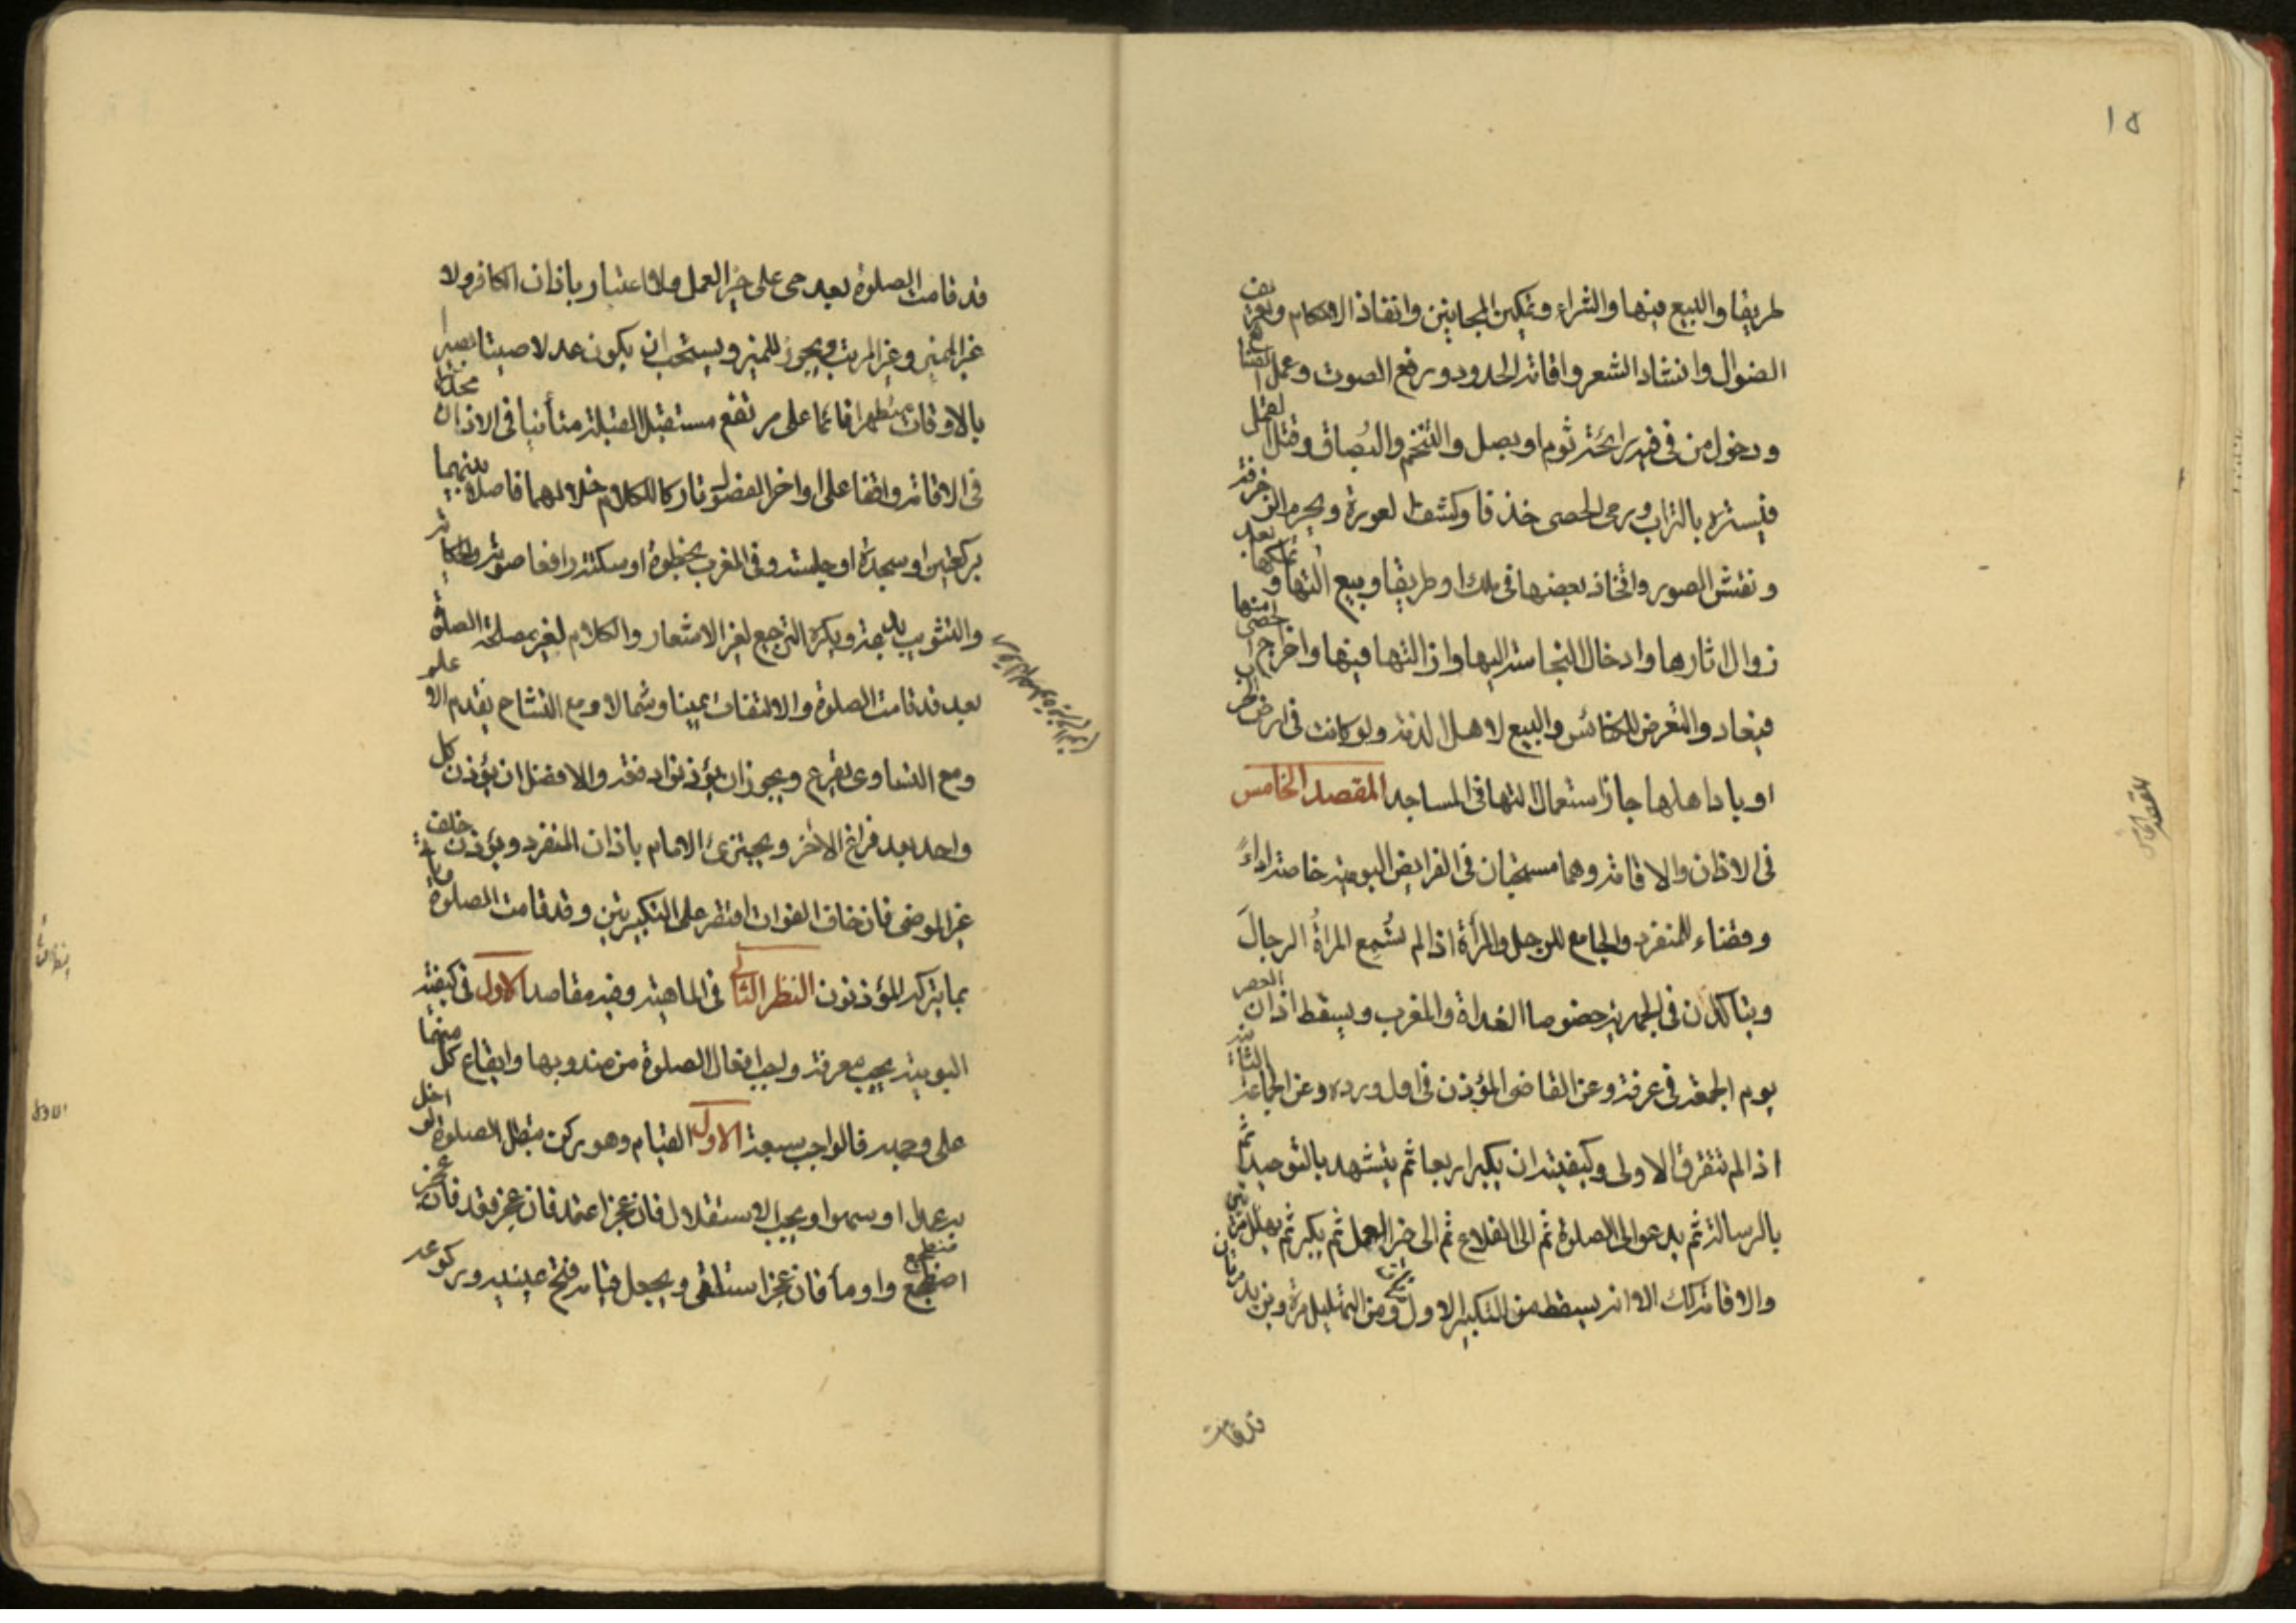 ١٥
طريقا والبيع فيها والشراء وتمكين المجانين وانفاذ الاحكام وتعريف
الضوال وانشاد الشعر واقامة الحدود ورفع الصوت وعمل الصنايع
ودخول من فى فيه رائحة ثوم او بصل والتنخم والبُصاق وقتل القمل
فيستره بالتراب ورمى الحصى خذفا وكشف العورة ويحرم الزخرفة
ونقش الصور واتخاذ بعضها فى ملك او طريقا وبيع آلتها وتملكها بعد
زوال اثارها وادخال النجاسة اليها وازالتها فيها واخراج الحصى منها
فيعاد والتعرض للكنائس والبيع لاهل الذمة ولو كانت فى ارض الحرب
او باد اهلها جاز استعمال التها فى المساجد المقصد الخامس
فى الاذان والاقامة وهما مستحبان فى الفرايض اليومية خاصة اداءً
وقضاء للمنفرد والجامع للرجل والمرأة اذا لم تُسْمِع المراةُ الرجالَ
ويتاكدان فى الجهرية خصوصا الغداة والمغرب ويسقط اذان العصر
يوم الجمعة فى عرفة وعن القاضى المؤذن فى اول ورده وعن الجماعة الثانية
اذا لم تتفرق الاولى وكيفيته ان يكبر اربعا ثم يتشهد بالتوحيد ثم
بالرسالة ثم يدعو الى الصلوة ثم الى الفلاح ثم الى خير العمل ثم يكبر ثم يهلل مرتين مرتين
والاقامة كك الا انه يسقط من التكبير الاول تكبيرتان ومن التهليل مرة ويزيد مرتين
قد قامت
المقصد الخامس
قد قامت الصلوة بعد حى على خير العمل ولا اعتبار باذان الكافر ولا
غير المميز وغير المرتب ويجوز للمميز ويستحب ان يكون عدلا صيتا بصيرا
بالاوقات متطهرا قائما على مرتفع مستقبل القبلة متأنيا فى الاذان محدرا
فى الاقامة واقفا على اواخر الفصول تاركا للكلام خلالهما فاصلا بينهما
بركعتين او سجدة او جلسة وفى المغرب بخطوة او سكتة رافعا صوته
والتثويب بدعة ويكره الترجيع لغير الاشعار والكلام لغير مصلحة الصلوة
بعد قد قامت الصلوة والالتفات يمينا وشمالا ومع التشاح يقدم الاعلم
ومع التساوى يقرع ويجوز ان يؤذنوا دفعة والافضل ان يؤذن كل
واحد بعد فراغ الاخر ويجتزئ الامام باذان المنفرد ويؤذن خلف
غير المرضى فان خاف الفوات اقتصر على التكبيرتين وقد قامت الصلوة وياتى
بما يتركه المؤذنون النظر الثانى فى الماهية وفيه مقاصد الاول فى كيفية
اليومية يجب معرفة واجب افعال الصلوة من مندوبها وايقاع كل منهما
على وجهه فالواجب سبعة الاول القيام وهو ركن تبطل الصلوة لو اخل
به عمدا او سهوا ويجب الاستقلال فان عجز اعتمد فان عجز قعد فان عجز
اضطجع واومأ فان عجز استلقى ويجعل قيامه فتح عينيه وركوعه
النظر الثانى
الاول